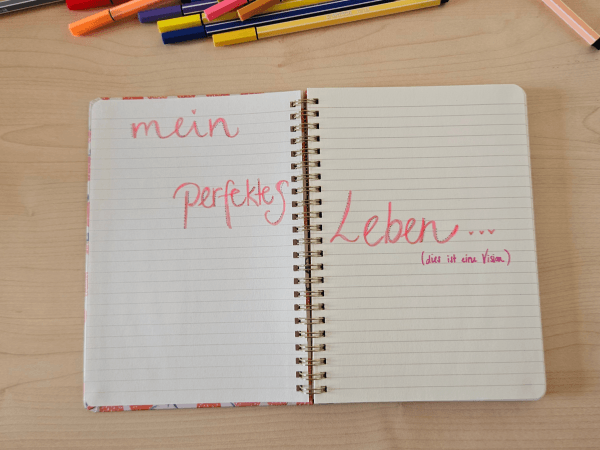 mein
perfektes
Leben...
(dies ist eine Vision)